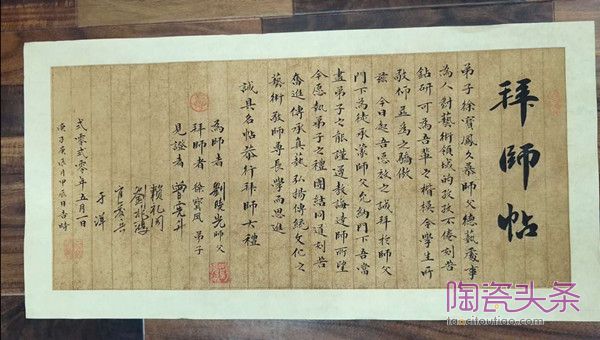 拜師帖
弟子徐寶鳳久慕師父總藝處事
為人對藝術領域的孜孜不倦刻苦
鉆研可為吾輩之楷模令學生所
敬仰並為之驕傲
茲今日起吾愿放之誠拜於師父
門下為徒承蒙師父允納門下吾當
盡弟子之能謹遵教誨達師所望
今愿執弟子之禮團結同道刻苦
奮進傳承真藝弘揚傳統文化之
藝術敬師尊長學而思進
誠具名帖恭行拜師大禮
為師者 劉陵光師父
拜師者 徐寶鳳弟子
見證者 曾憲
于洋
貳零貳零年五月一日
庚子庚辰月甲辰日吉時
陶瓷头条
taocitoutiao.com